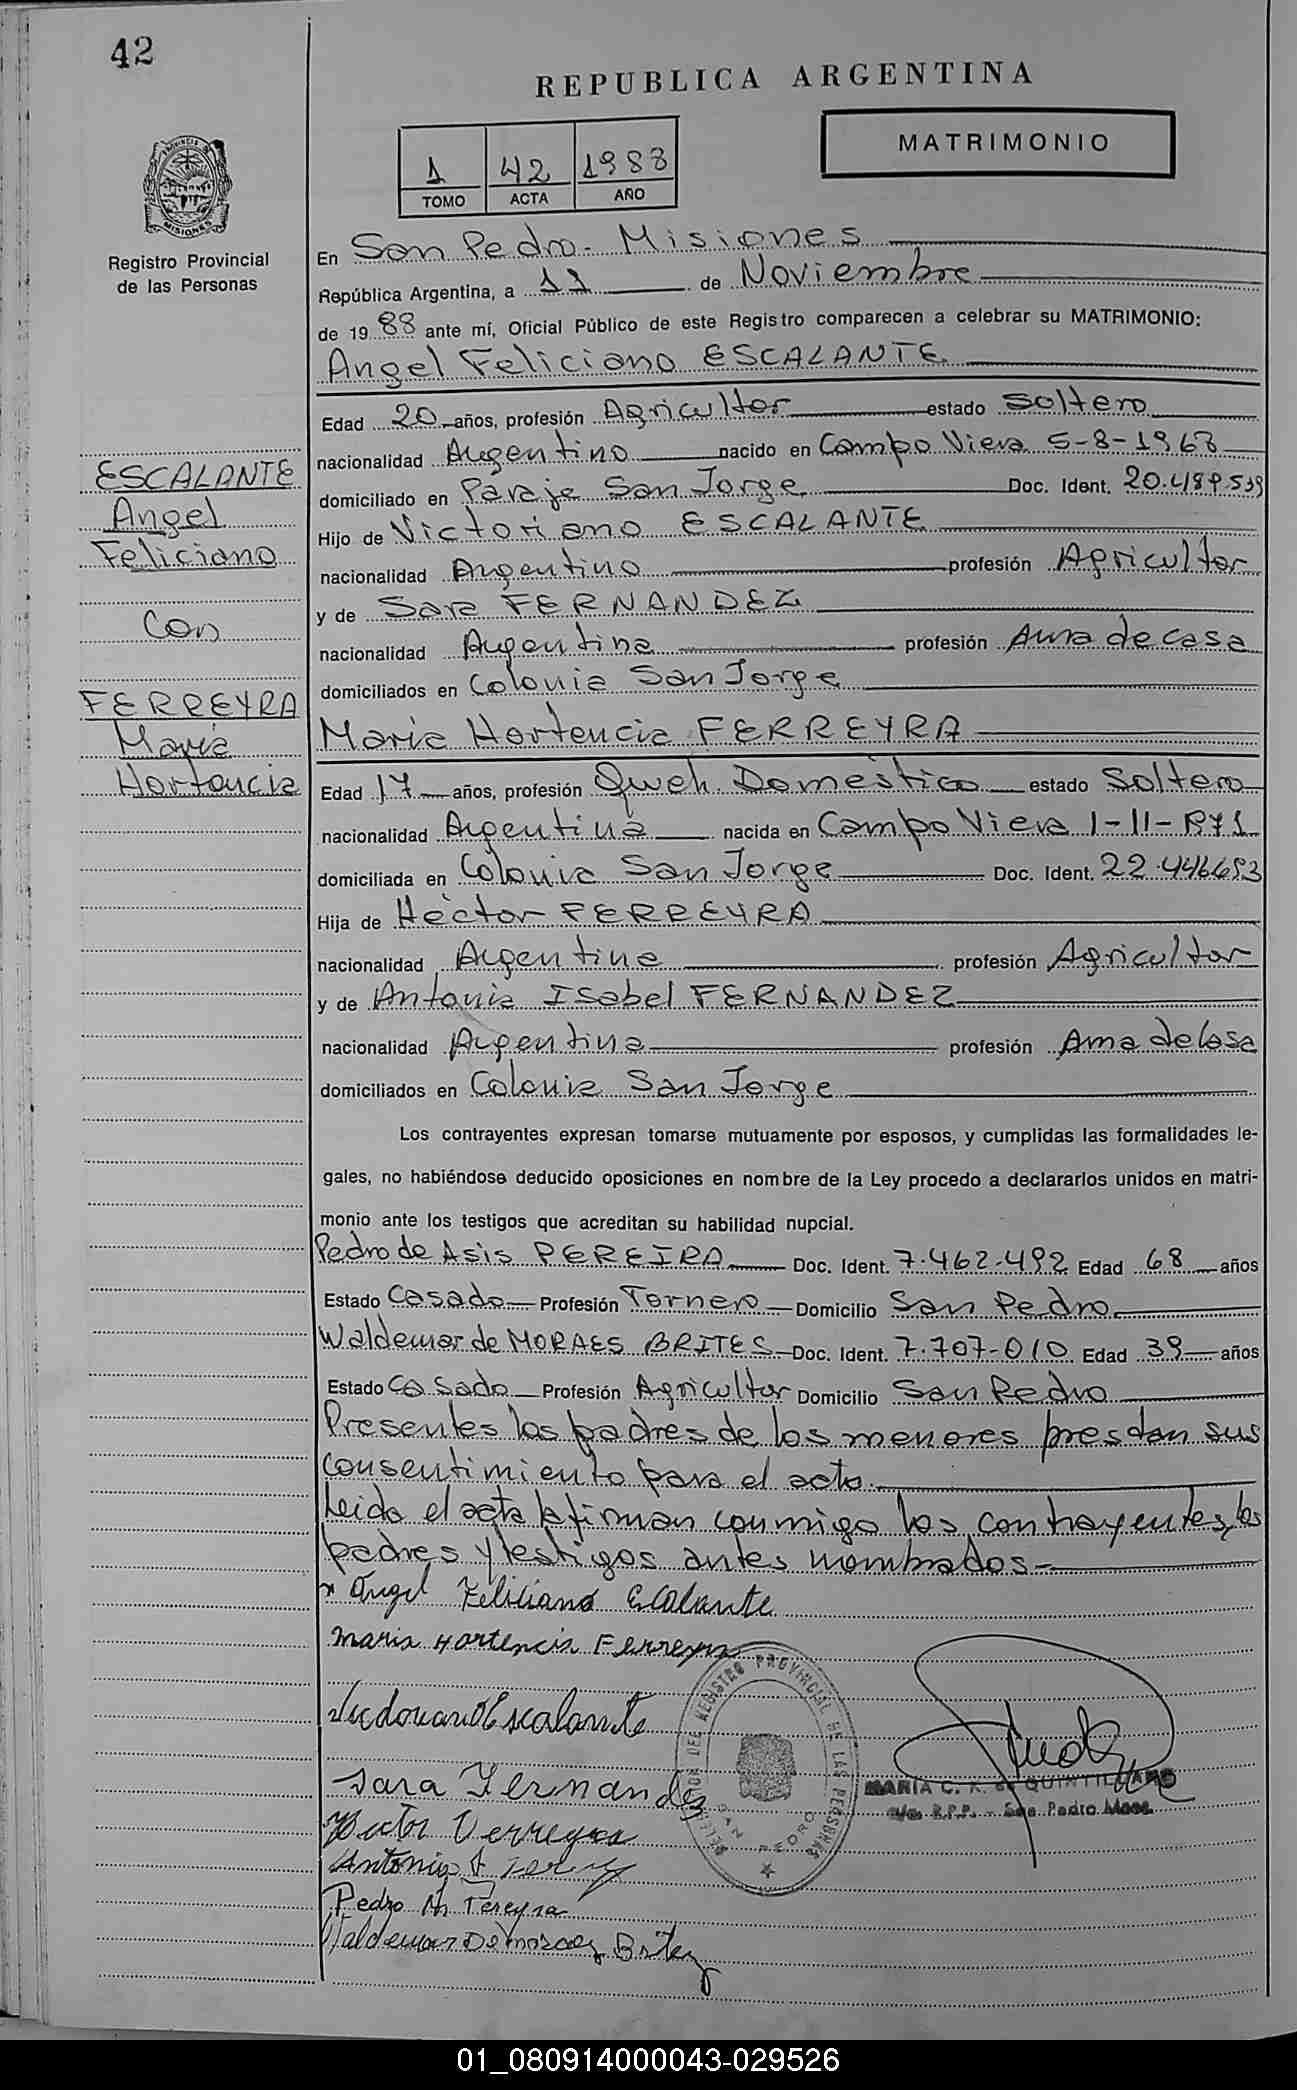 42
REPUBLICA ARGENTINA
MATRIMONIO
1 42 1988
TOMO ACTA AÑO
PROVINCIA DE
MISIONES
Registro Provincial
de las Personas
En San Pedro - Misiones
República Argentina, a 11 de Noviembre
de 19 88 ante mí, Oficial Público de este Registro comparecen a celebrar su MATRIMONIO:
Angel Feliciano ESCALANTE
Edad 20 años, profesión Agricultor estado Soltero
nacionalidad Argentino nacido en Campo Viera 5-8-1968
domiciliado en Paraje San Jorge Doc. Ident. 20.489.539
Hijo de Victoriano ESCALANTE
nacionalidad Argentino profesión Agricultor
y de Sara FERNANDEZ
nacionalidad Argentina profesión Ama de casa
domiciliados en Colonia San Jorge
ESCALANTE
Angel
Feliciano
Con
FERREYRA
Maria
Hortencia
Maria Hortencia FERREYRA
Edad 17 años, profesión Queh. Domestico estado Soltera
nacionalidad Argentina nacida en Campo Viera 1-11-1971
domiciliada en Colonia San Jorge Doc. Ident. 22.446653
Hija de Hector FERREYRA
nacionalidad Argentina profesión Agricultor
y de Antonia Isabel FERNANDEZ
nacionalidad Argentina profesión Ama de Casa
domiciliados en Colonia San Jorge
Los contrayentes expresan tomarse mutuamente por esposos, y cumplidas las formalidades le-
gales, no habiéndose deducido oposiciones en nombre de la Ley procedo a declararlos unidos en matri-
monio ante los testigos que acreditan su habilidad nupcial.
Pedro de Asis PEREIRA Doc. Ident. 7.462.492 Edad 68 años
Estado Casado Profesión Tornero Domicilio San Pedro
Waldemar de MORAES BRITES Doc. Ident. 7.707-010 Edad 39 años
Estado Casado Profesión Agricultor Domicilio San Pedro
Presentes los padres de los menores prestan sus
consentimiento para el acto.
Leida el acta la firman conmigo los contrayentes, los
padres y testigos antes nombrados.-
Angel Feliciano Escalante
Maria Hortencia Ferreyra
Victoriano Escalante
Sara Fernandez
Hector Ferreyra
Antonia I
Pedro A. Pereyra
Valdemar De Moraez Britez
DEL REGISTRO PROVINCIAL DE LAS PERSONAS
SAN PEDRO
MARIA C. K. de QUINTILLANO
R.P.P. - San Pedro Mnes.
01_080914000043-029526